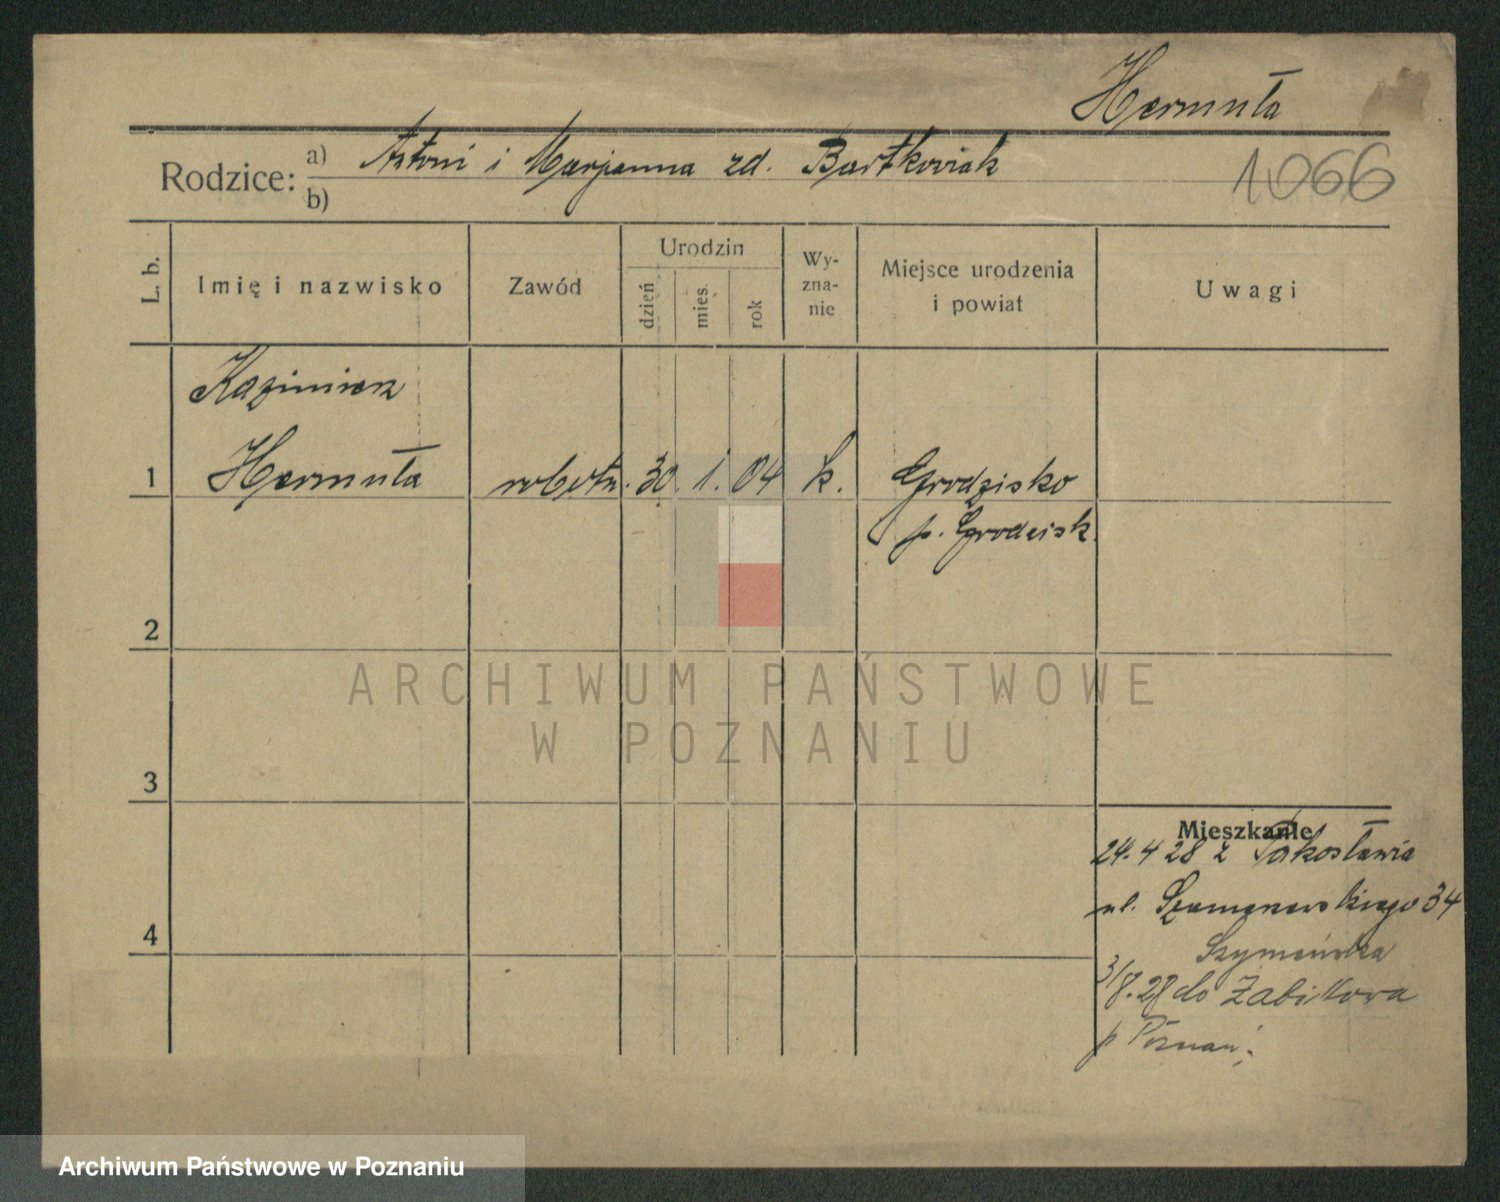 Hermuła
Rodzice: a) Antoni i Marjanna zd. Bartkowiak
b)
1066
L. b.
Imię i nazwisko
Zawód
Urodzin
dzień
mies.
rok
Wy-
zna-
nie
Miejsce urodzenia
i powiat
Uwagi
Kazimierz
1 Hermuła robotn. 30. 1. 04 k. Grodzisko
p. Grodzisk.
2
3
4
Mieszkanie
24. 4 28 z Pakosławia
ul. Szamarzewskiego 34
Szymańska
3/8. 28 do Żabikowa
p Poznań
ARCHIWUM PAŃSTWOWE
W POZNANIU
Archiwum Państwowe w Poznaniu